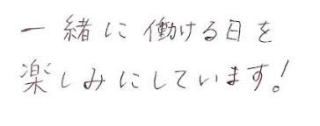 一緒に働ける日を
楽しみにしています!